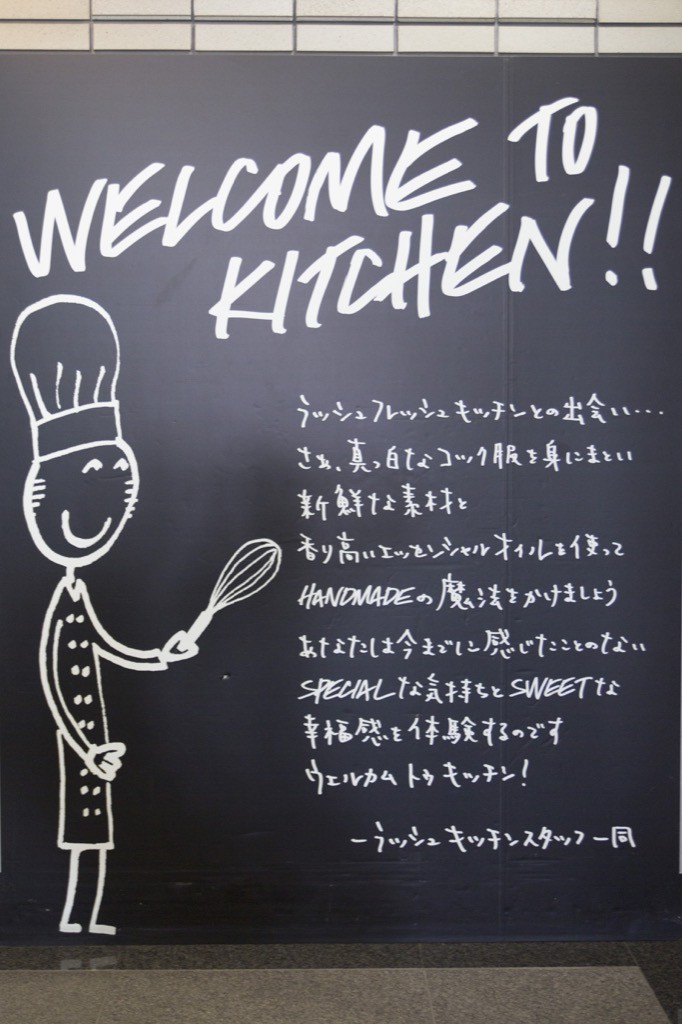 WELCOME TO
KITCHEN!!
ラッシュフレッシュキッチンとの出会い…
さぁ、真っ白なコック服を身にまとい
新鮮な素材と
香り高いエッセンシャルオイルを使って
HANDMADEの魔法をかけましょう
あなたは今までに感じたことのない
SPECIALな気持ちとSWEETな
幸福感を体験するのです
ウェルカム トゥ キッチン!
ーラッシュ キッチンスタッフ一同